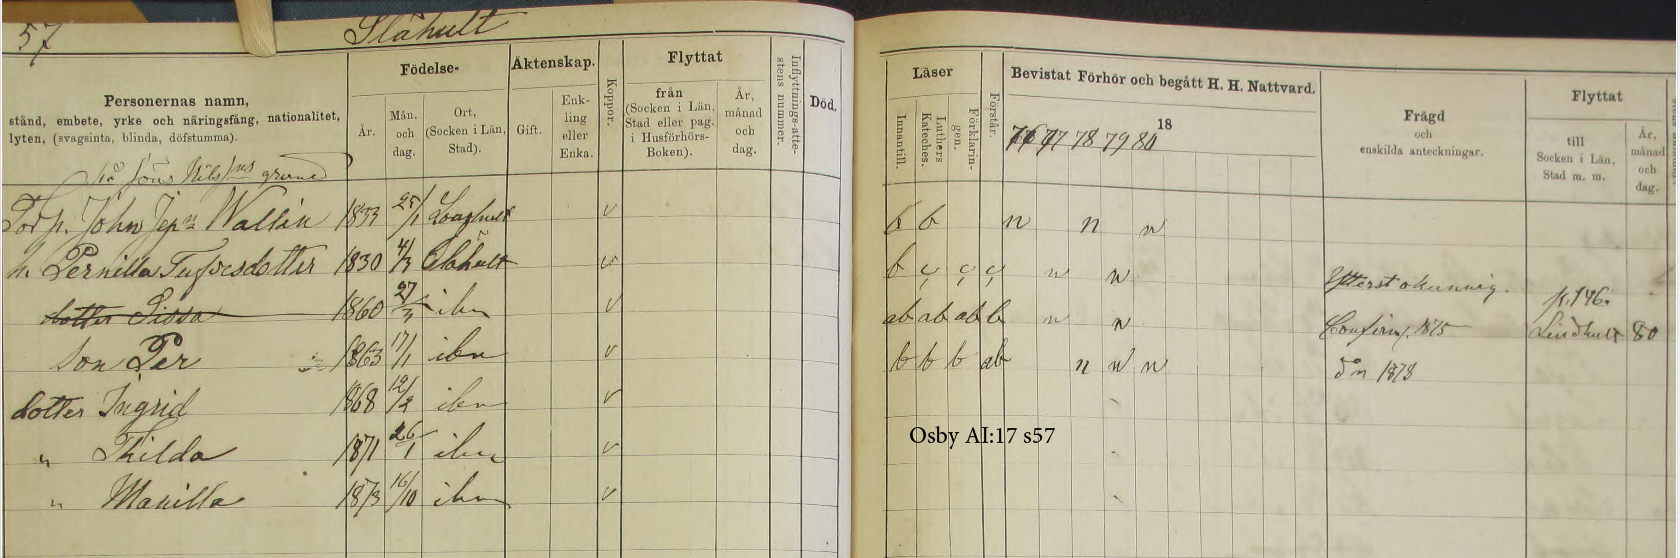 57
Slähult
Personernas namn,
stånd, embete, yrke och näringsfång, nationalitet,
lyten, (svagsinta, blinda, döfstumma).
Födelse-
År.
Mån.
och
dag.
Ort,
(Socken i Län,
Stad).
Äktenskap.
Gift.
Enk-
ling
eller
Enka.
Koppor.
Flyttat
från
(Socken i Län,
Stad eller pag.
i Husförhörs-
Boken).
År,
månad
och
dag.
Inflyttnings-atte-
stens nummer.
Död.
Läser
Innantill.
Luthers
Kateches.
Förklarin-
gen.
Förstår.
Bevistat Förhör och begått H. H. Nattvard.
18
76 77 78 79 80
Frägd
och
enskilda anteckningar.
Flyttat
till
Socken i Län,
Stad m. m.
År,
månad
och
dag.
på Jöns Nils
Torp. John Jeps Wallin 1833 25/1 v b b n n n
h. Pernilla 1830 4/3 v b n n Ytterst okunnig. p. 146.
dotter Sissa 1860 27/3 ibn v ab ab ab b n n Confirm. 1875 Lindhult 80
son Per 1863 17/1 ibn v b b b ab n n n dn 1878
dotter Ingrid 1868 12/2 ibn v
" Thilda 1871 26/1 ibn v
" Manilla 1873 16/10 ibn v
Osby AI:17 s57